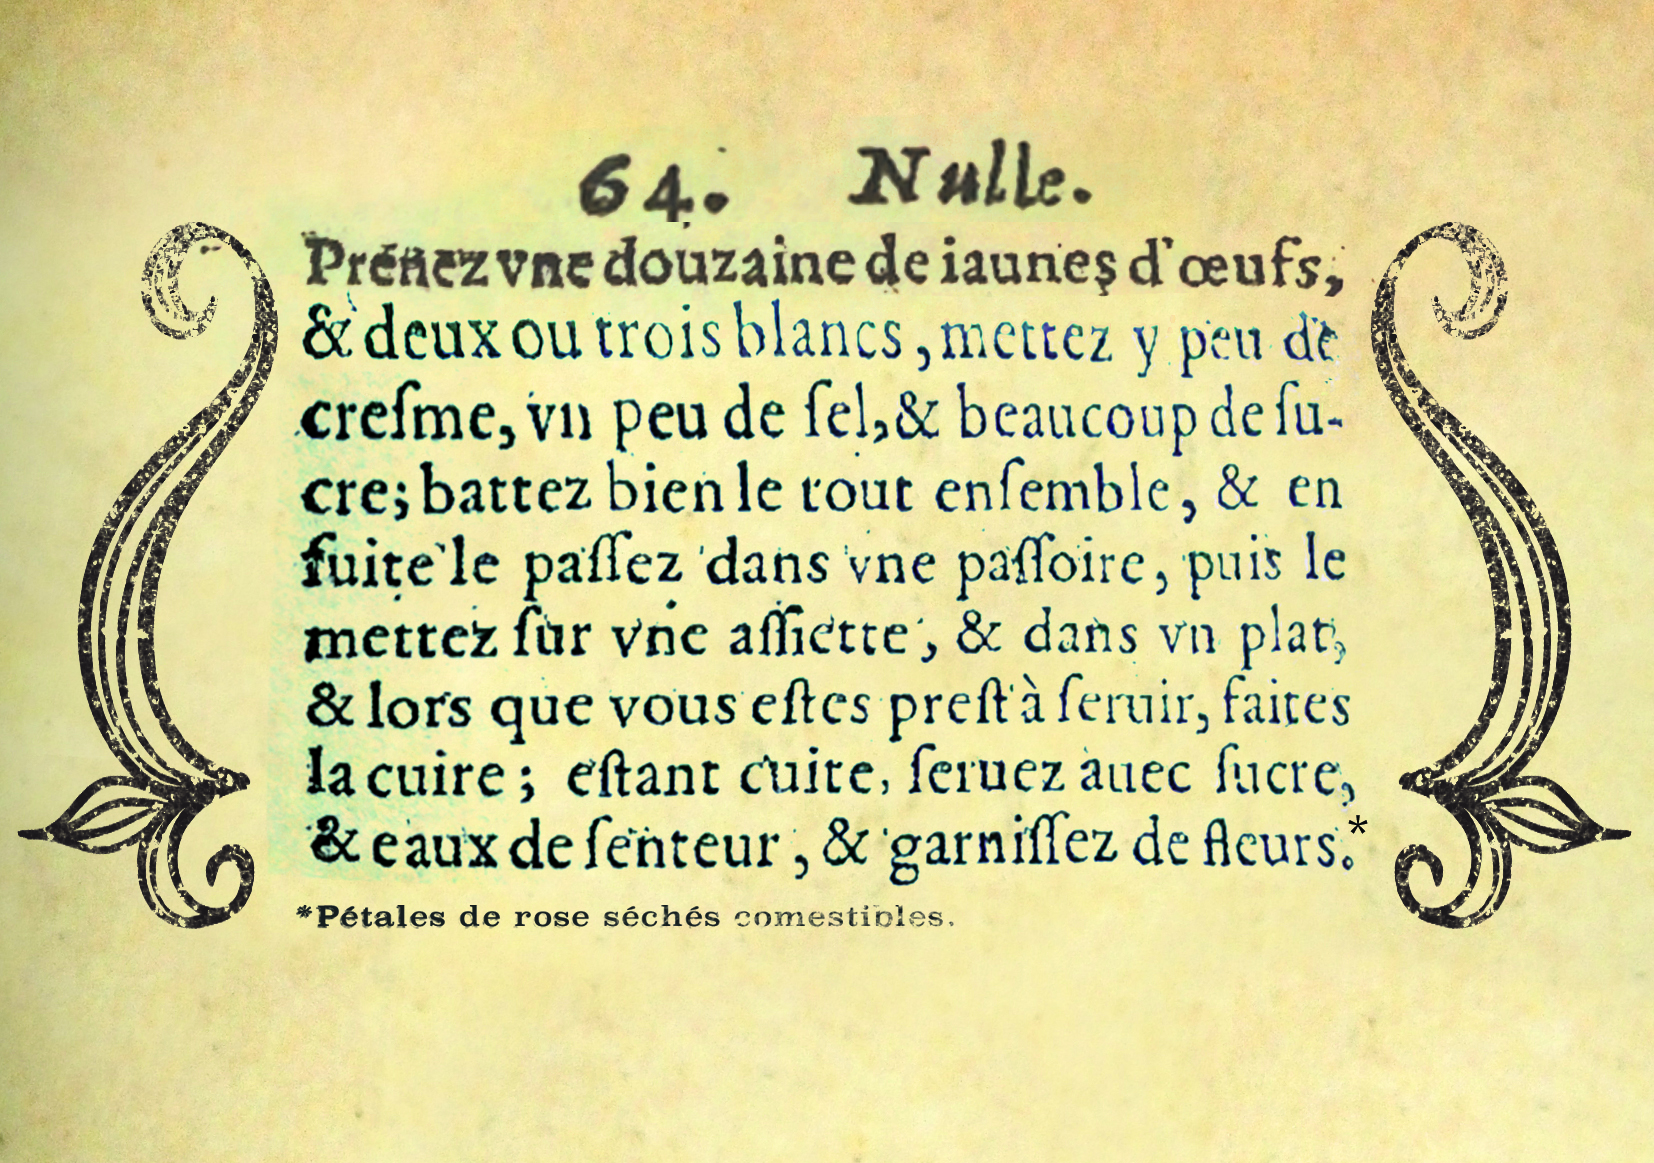 64. Nulle.
Prenez vne douzaine de iaunes d'œufs,
& deux ou trois blancs, mettez y peu de
creſme, vn peu de ſel, & beaucoup de ſu-
cre; battez bien le tout enſemble, & en
ſuite le paſſez dans vne paſſoire, puis le
mettez ſur vne aſſiette, & dans vn plat,
& lors que vous eſtes preſt à ſeruir, faites
la cuire; eſtant cuite, ſeruez auec ſucre,
& eaux de ſenteur, & garniſſez de fleurs.*
*Pétales de rose séchés comestibles.